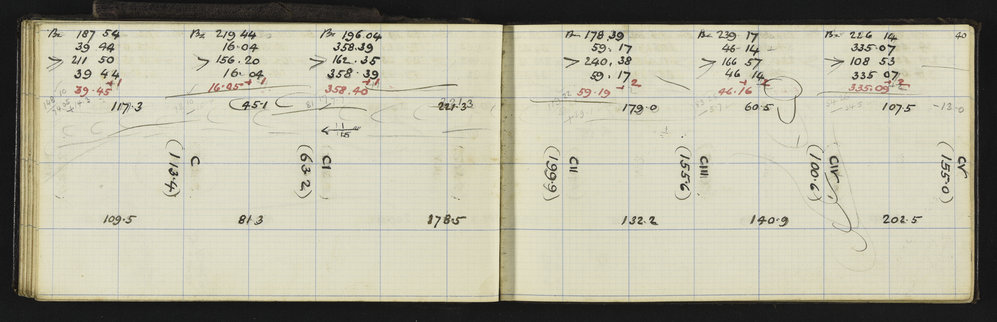 Bn 187 54
39 44
> 211 50
39 44
+1
39.45
117.3
C
(113.4)
109.5
Bn 219 44
16.04
> 156.20
16.04
+1
16.05
45.1
CI
(63.2)
81.3
Bn 196.04
358.39
> 162.35
358.39
+1
358.40
221.3
178.5
Bn 178.39
59.17
> 240.38
59.17
+2
59.19
179.0
CII
(199.9)
132.2
Bn 239 17
46 14
> 166 57
46 14
+2
46.16
60.5
CIII
(155.6)
140.9
Bn 226 14
335.07
> 108 53
335 07
+2
335.09
107.5
CIV
(100.6)
202.5
40
-13.0
CV
(155.0)